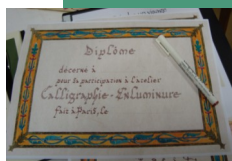 Diplôme
décerné à
pour sa participation à l'atelier
Calligraphie - Enluminure
fait à Paris, le